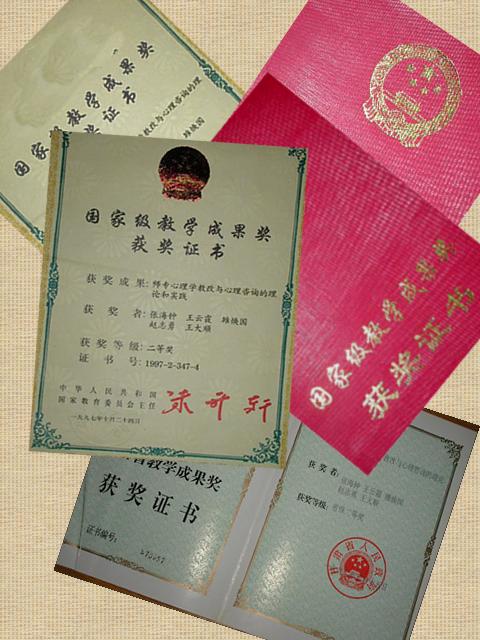 国家级教学成果奖
获奖证书
教改与心理咨询的理
雎换国
国家级教学成果奖
获奖证书
获奖成果:师专心理学教改与心理咨询的理
论和实践
获奖者:张海钟 王云霞 雎换国
赵志勇 王大顺
获奖等级:二等奖
证书号:1997-2-347-4
中华人民共和国
国家教育委员会主任 朱开轩
一九九七年十月二十四日
国家级教学成果奖
获奖证书
教学成果奖
获奖证书
证书编号:
获奖者:
张海钟 王云霞
赵志勇 王大顺
获奖等级:省级二等奖
甘肃省人民政府